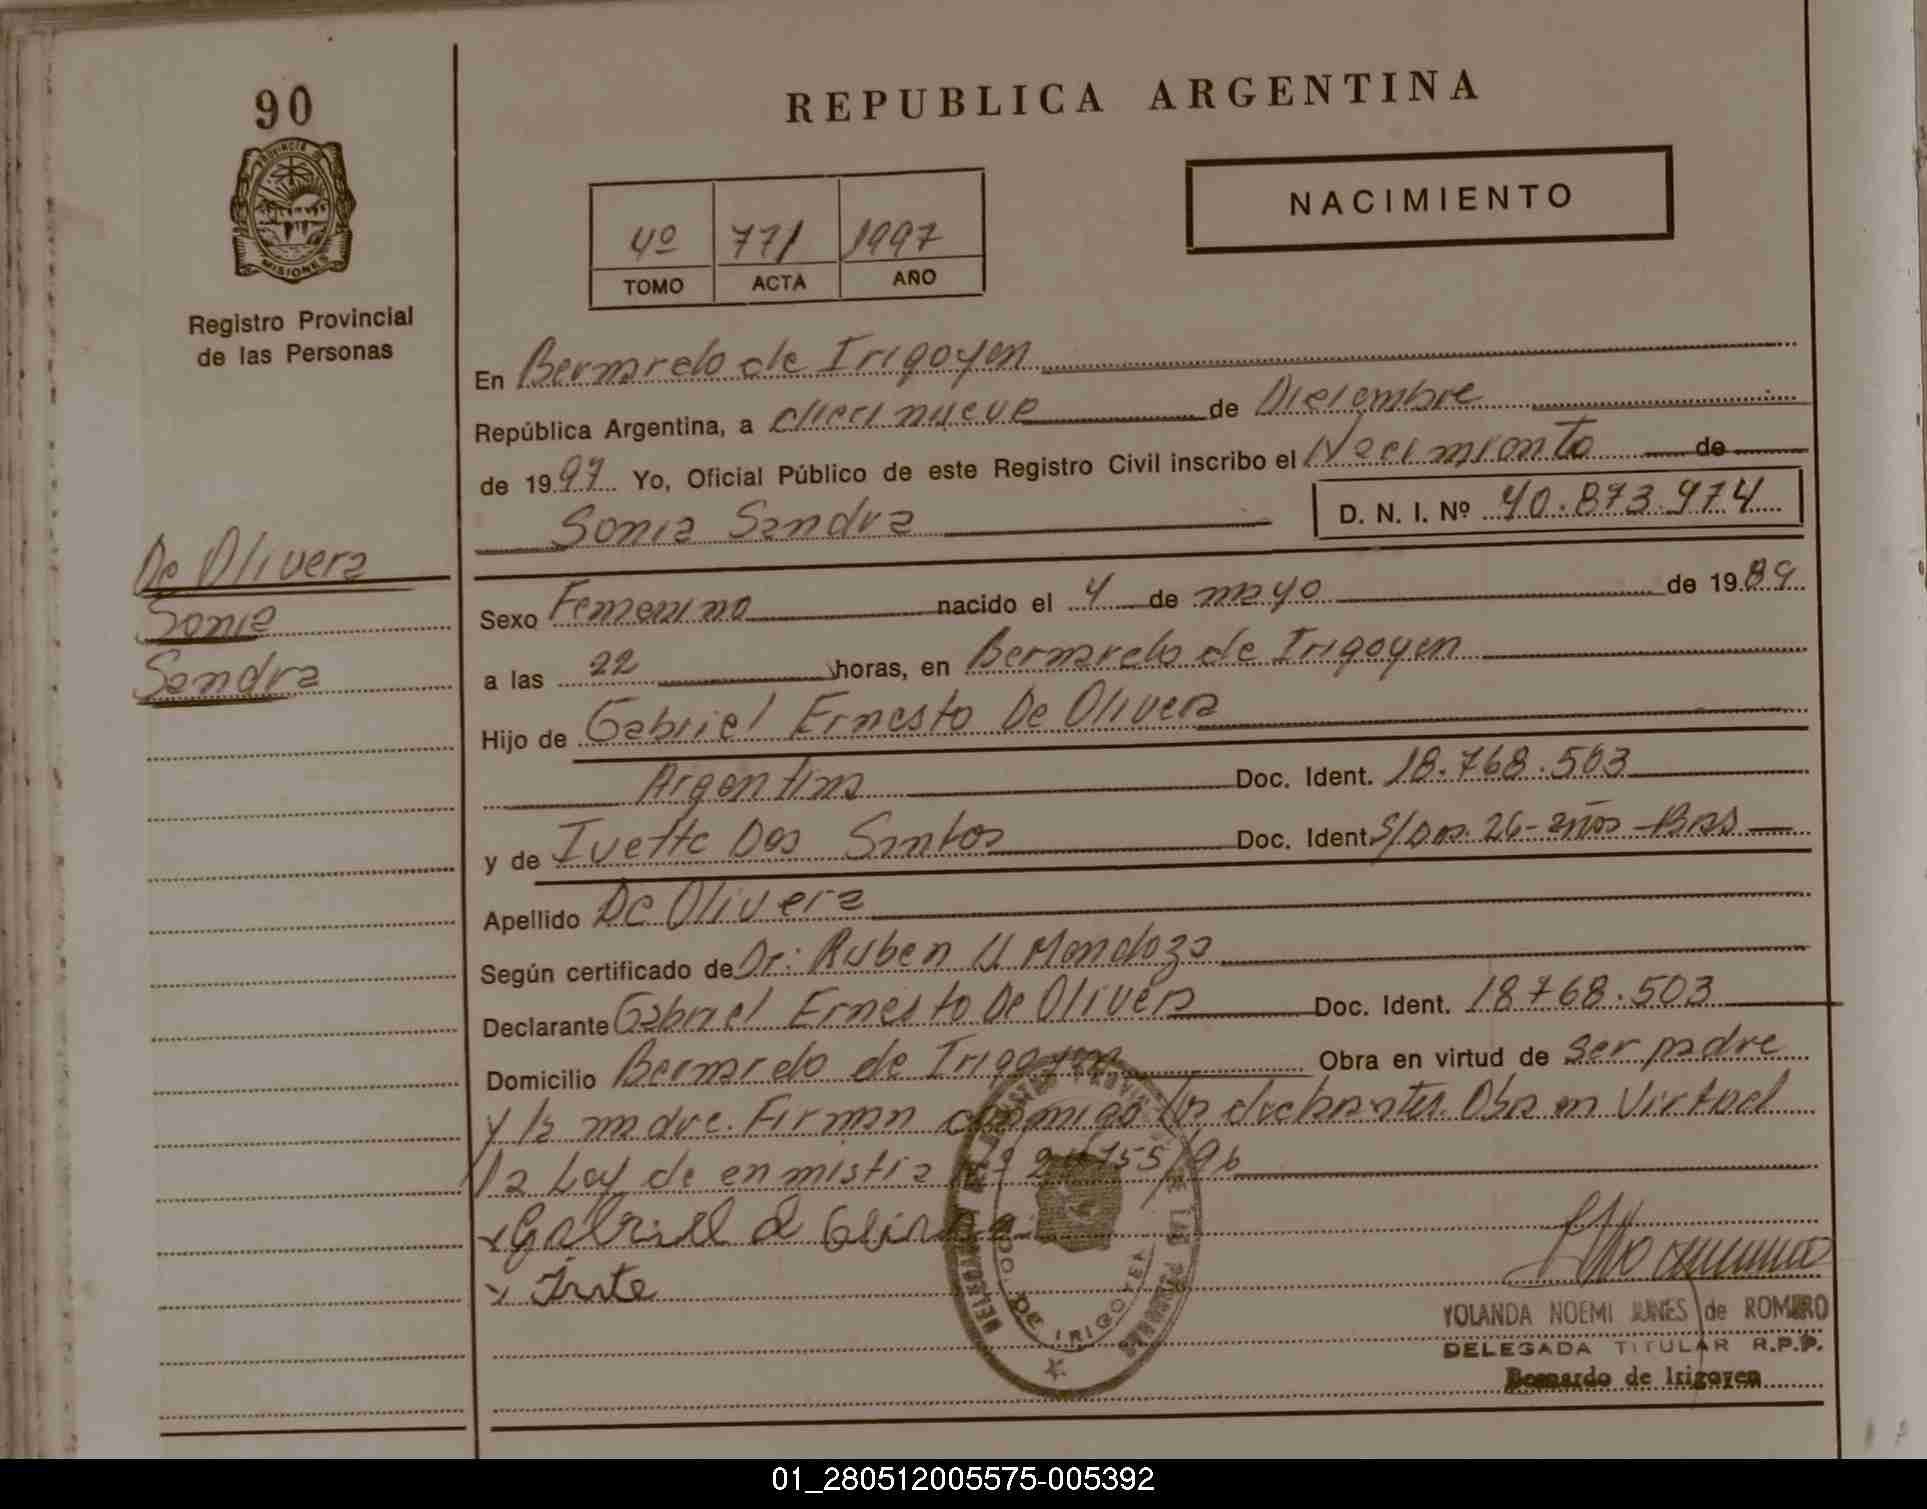 90
PROVINCIA DE
MISIONES
Registro Provincial
de las Personas
De Olivera
Sonia
Sandra
REPUBLICA ARGENTINA
NACIMIENTO
4º 771 1997
TOMO ACTA AÑO
En Bernardo de Irigoyen
República Argentina, a diecinueve de Diciembre
de 1997 Yo, Oficial Público de este Registro Civil inscribo el Nacimiento de
Sonia Sandra D. N. I. Nº 40.873.974
Sexo Femenino nacido el 4 de mayo de 1989
a las 22 horas, en Bernardo de Irigoyen
Hijo de Gabriel Ernesto De Olivera
Argentina Doc. Ident. 18.768.503
y de Ivette Dos Santos Doc. Ident. S/Doc. 26-años-Bras
Apellido De Olivera
Según certificado de Dr: Ruben U Mendoza
Declarante Gabriel Ernesto De Olivera Doc. Ident. 18768.503
Domicilio Bernardo de Irigoyen Obra en virtud de ser padre
y la madre. Firman conmigo los declarantes. Obra en Virtud
la Ley de enmistia Nº 24755/96
Gabriel d Olivera
YOLANDA NOEMI JUNES de ROMERO
DELEGADA TITULAR R.P.P.
Bernardo de Irigoyen
DE IRIGOYEN
DE LAS PERSONAS
01_280512005575-005392